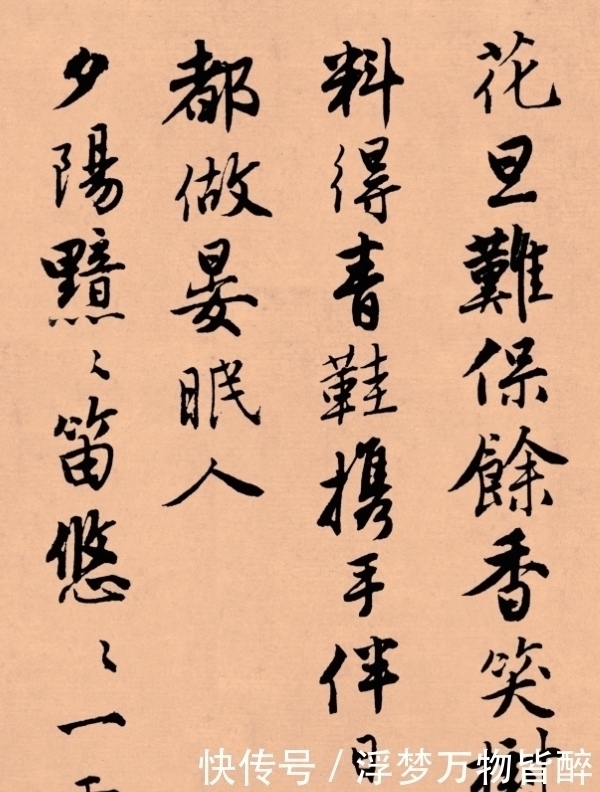 花旦難保餘香笑
料得青鞋携手伴日
都做晏眠人
夕陽黯〻笛悠〻一
快传号 / 浮梦万物皆醉